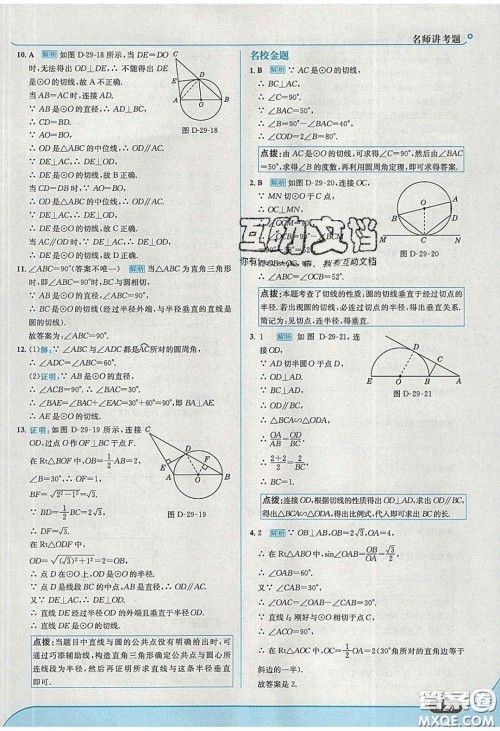 名师讲考题
10. A 解析 如图 D-29-18 所示,当 DE=DO
时,无法得出 OD⊥DE,∴不能得出 DE
是⊙O 的切线,故 A 不正确.
当 AB=AC 时,连接 AD.
∵AB 是⊙O 的直径,∴AD⊥BC.
∴CD=BD.
∵AO=BO,
∴OD 是△ABC 的中位线,∴OD∥AC.
∵DE⊥AC,∴DE⊥OD.
∴DE 是⊙O 的切线,故 B 正确.
当 CD=BD 时,∵AO=BO,
∴OD 是△ABC 的中位线,∴OD∥AC.
∵DE⊥AC,∴DE⊥OD.
∴DE 是⊙O 的切线,故 C 正确.
图 D-29-18
11. ∠ABC=90°(答案不唯一) 解析 当△ABC 为直角三角形
时,即∠ABC=90°时,BC 与圆相切.
∵AB 是⊙O 的直径,∠ABC=90°,
∴BC 是⊙O 的切线(经过半径外端,与半径垂直的直线是
圆的切线).
故答案为:∠ABC=90°.
12. (1)解:∵∠ABC 与∠ADC 都是AC所对的圆周角,
∴∠ABC=∠ADC=60°.
(2)证明:∵AB 是⊙O 的直径,
∴∠ACB=90°,∴∠BAC=30°.
∴∠BAE=∠BAC+∠EAC=30°+60°=90°,即 BA⊥AE.
∴AE 是⊙O 的切线.
13. 证明:如图 D-29-19 所示,连接
OD,过点 O 作 OF⊥BE 于点 F.
在 Rt△BOF 中,OB=1/2 AB=2,
∠B=30°,∴OF=1,
BF=√(2²-1²)=√3.
∵BD=1/2 DC=2√3,
∴DF=√3.
在 Rt△ODF 中,
OD=√((√3)²+1²)=2=OB.
∴点 D 在⊙O 上,∴OD 是⊙O 的半径.
∵点 D 是线段 BC 的中点,AB 是直径,∴OD∥AC.
又∵DE⊥AC,∴DE⊥OD.
∴直线 DE 经过半径 OD 的外端且垂直于半径 OD.
∴直线 DE 是⊙O 的切线.
图 D-29-19
点拨:当题目中直线与圆的公共点没有明确给出时,可通
过巧添辅助线,构造直角三角形确定公共点与圆心所
连线段为半径,然后再证明所求直线与这条半径垂直
即可.
名校金题
1. B 解析 ∵AC 是⊙O 的切线,
∴BC⊥AC,
∴∠C=90°.
∵∠BAC=50°,
∴∠B=90°-∠BAC=40°.
∴∠COD=2∠B=80°.
点拨:由 AC 是⊙O 的切线,可求得∠C=90°,然后由∠BAC
=50°,求得∠B 的度数,再利用圆周角定理,即可求得答案.
2. B 解析 如图 D-29-20,连接OC,
∵MN 切⊙O 于 C 点,
∴OC⊥MN,
∴∠OBC=∠OCB=52°.
图 D-29-20
互动文档
点拨:本题考查了切线的性质:圆的切线垂直于经过切点的
半径.若出现圆的切线,必连过切点的半径,得出垂直关系.
简记为:见切点,连半径,见垂直.
3. 1 解析 如图 D-29-21,连
接 OD.
∵AD 切半圆 O 于点 D,
∴OD⊥AD.
又∵BC⊥AD,
∴OD∥BC,
∴△BCA∽△ODA.
∴OA/BA=OD/BC,
∴(2+2)/2=2/BC,
∴BC=1.
图 D-29-21
点拨:连接 OD,根据切线的性质得出 OD⊥AD,求出 OD∥BC,得
出△BCA∽△ODA,得出比例式,代入即可求出 BC 的长.
4. 2 解析 ∵OB⊥AB,OB=2√3,OA=4,
∴在 Rt△ABO 中,sin∠OAB=OB/OA=√3/2,
∴∠OAB=60°.
又∵∠CAB=30°,
∴∠OAC=∠OAB-∠CAB=30°.
∵直线 l₂ 刚好与⊙O 相切于点 C,
∴∠ACO=90°,
∴在 Rt△AOC 中,OC=1/2 OA=2(30°角的直角边等于
斜边的一半).
故答案是 2.
答案圈
MXQE.COM